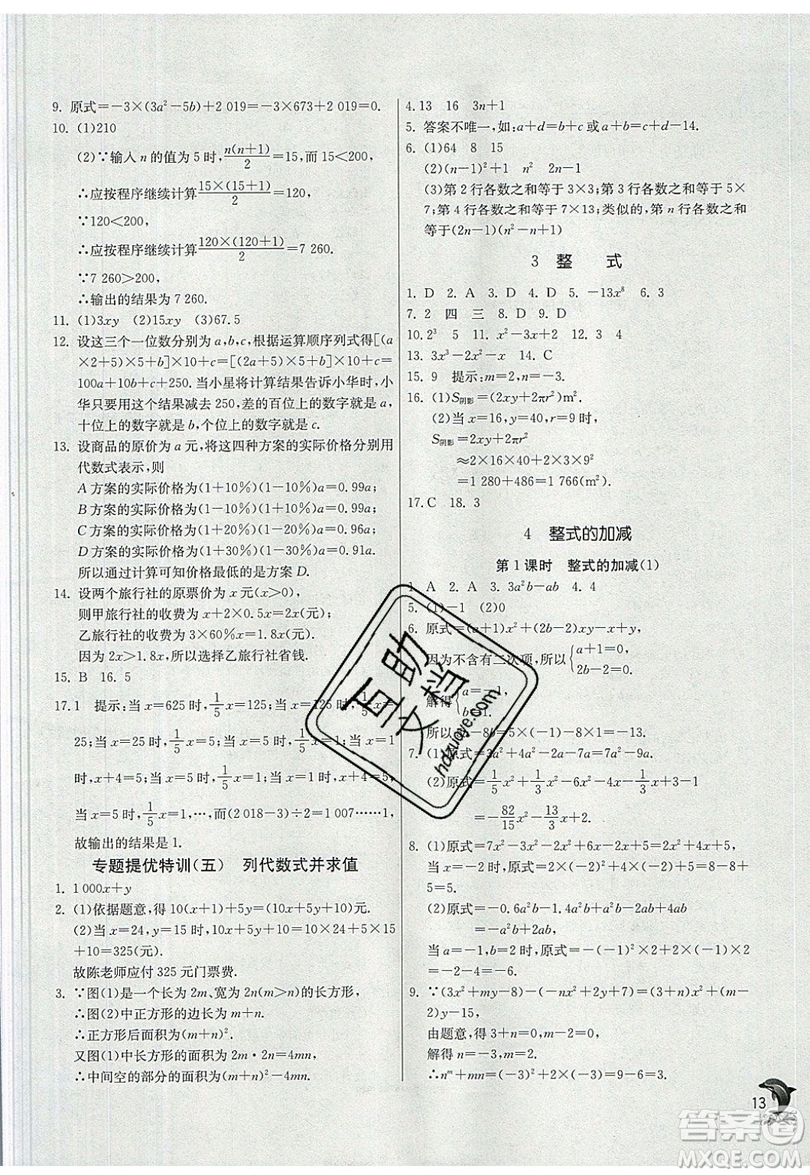 9. 原式=-3×(3a²-5b)+2 019=-3×673+2 019=0.
10. (1)210
(2)∵输入 n 的值为 5 时,n(n+1)/2=15,而 15<200,
∴应按程序继续计算 15×(15+1)/2=120,
∵120<200,
∴应按程序继续计算 120×(120+1)/2=7 260.
∵7 260>200,
∴输出的结果为 7 260.
11. (1)3xy (2)15xy (3)67.5
12. 设这三个一位数分别为 a,b,c,根据运算顺序列式得[(a
×2+5)×5+b]×10+c=[(2a+5)×5+b]×10+c=
100a+10b+c+250. 当小星将计算结果告诉小华时,小
华只要用这个结果减去 250,差的百位上的数字就是 a,
十位上的数字就是 b,个位上的数字就是 c.
13. 设商品的原价为 a 元,将这四种方案的实际价格分别用
代数式表示,则
A 方案的实际价格为(1+10%)(1-10%)a=0.99a;
B 方案的实际价格为(1-10%)(1+10%)a=0.99a;
C 方案的实际价格为(1+20%)(1-20%)a=0.96a;
D 方案的实际价格为(1+30%)(1-30%)a=0.91a.
所以通过计算可知价格最低的是方案 D.
14. 设两个旅行社的原票价为 x 元(x>0),
则甲旅行社的收费为 x+2×0.5x=2x(元).
乙旅行社的收费为 3×60%×x=1.8x(元).
因为 2x>1.8x,所以选择乙旅行社省钱.
15. B 16. 5
17. 1 提示:当 x=625 时,1/5x=125;当 x=125 时,1/5x=
25;当 x=25 时,1/5x=5;当 x=5 时,1/5x=1;当 x=1
时,x+4=5;当 x=5 时,1/5x=1;当 x=1 时,x+4=5;
当 x=5 时,1/5x=1……(2 018-3)÷2=1 007……1,
故输出的结果是 1.
专题提优特训(五) 列代数式并求值
1. 1 000x+y
2. (1)依据题意,得 10(x+1)+5y=(10x+5y+10)元.
(2)当 x=24,y=15 时,10x+5y+10=10×24+5×15
+10=325(元).
故陈老师应付 325 元门票费.
3. ∵图(1)是一个长为 2m、宽为 2n(m>n)的长方形,
∴图(2)中正方形的边长为 m+n.
∴正方形后面积为(m+n)².
又图(1)中长方形的面积为 2m·2n=4mn,
∴中间空的部分的面积为(m+n)²-4mn.
4. 13 16 3n+1
5. 答案不唯一,如:a+d=b+c 或 a+c=b+d-14.
6. (1)64 8 15
(2)(n-1)²+1 n² 2n-1
(3)第 2 行各数之和等于 3×3;第 3 行各数之和等于 5×
7;第 4 行各数之和等于 7×13;类似的,第 n 行各数之和
等于(2n-1)(n²-n+1)
3 整 式
1. D 2. A 3. D 4. D 5. -13x⁸ 6. 3
7. 2 四 三 8. D 9. D
10. 2³ 5 11. x²-3x+2 12. C
13. 3x³-2x²-x 14. C
15. 9 提示:m=2,n=-3.
16. (1)S阴影=(2xy+2πr²)m².
(2)当 x=16,y=40,r=9 时,
S阴影=2xy+2πr²
≈2×16×40+2×3×9²
=1 280+486=1 766(m²).
17. C 18. 3
4 整式的加减
第 1 课时 整式的加减(1)
1. A 2. A 3. 3a²b-ab 4. 4
5. (1)-1 (2)0
6. 原式=(a+1)x²+(2b-2)xy-x+y.
因为不含有二次项,所以{a+1=0, 2b-2=0.
解得{a=-1, b=1.
7. (1)原式=3a²+4a²-2a-7a=7a²-9a.
(2)原式=1/3x²-6x²+1/5x²-4x+3x+3-1
=-82/15x²-x+2.
8. (1)原式=7x²-6x²-2x+2x+5=2x+4x²+8x²+
+5=5x²+5.
(2)原式=-0.6a²b-1.4a²b-2ab+4ab
=-2a²b+2ab,
9. ∵(3x²+my-8)-(-nx²+2y+7)=(3+n)x²+(m-
2)y-15,
由题意,得 3+n=0,m-2=0,
解得 n=-3,m=2.
∴nᵐ+mn=(-3)²+2×(-3)=9-6=3.
13
互助文档
hdzuoye.com
答案圈
MXQE.COM